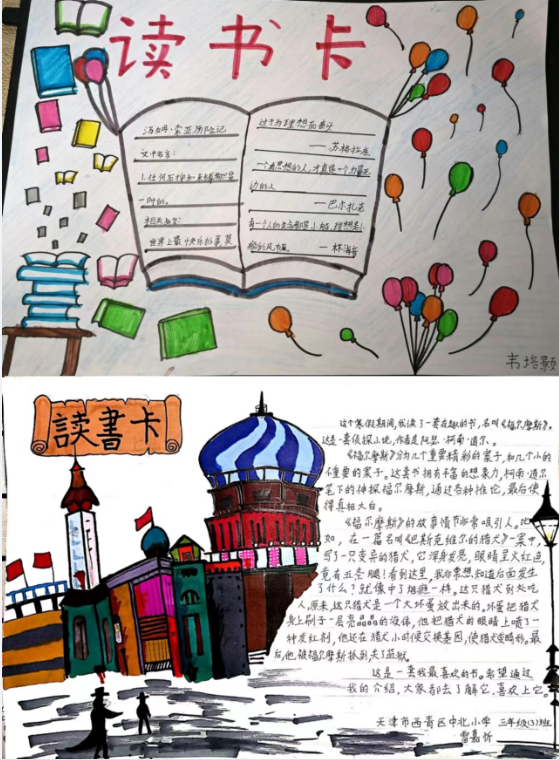 读书卡
汤姆·索亚历险记
文中名言:
1.任何
一时的。
相关名言:
世界上最快乐的莫莫
过于为理想而奋斗
——苏格拉底
一个有思想的人,才真是一个力量无
边的人
——巴尔扎克
每一个人的生命都是小船,理想是小
船的风帆。
——林海音
韦培颢
読書卡
这个寒假期间,我读了一套有趣的书,名叫《福尔摩斯》。
这是一套侦探小说,作者是阿瑟·柯南·道尔。
《福尔摩斯》分为几个重要精彩的案子,和几个小的
不重要的案子。这套书拥有丰富的想象力,柯南·道尔
笔下的神探福尔摩斯,通过各种推论,最后使
得真相大白。
《福尔摩斯》的故事情节非常吸引人。比
如,在一篇名叫《巴斯克维尔的猎犬》一案中,
写了一只变异的猎犬,它浑身发亮,眼睛呈火红色,
竟有五条腿!看到这里,我非常想知道后面发生
了什么?就像中了烟瘾一样。这只猎犬到处吃
人,原来,这只猎犬是一个大坏蛋放出来的。坏蛋把猎犬
身上刷了一层亮晶晶的液体,他把猎犬的眼睛上喷了一
种发红剂,他还在猎犬小时候交换基因,使猎犬变畸形。最
后,他被福尔摩斯抓到,关了监狱。
这是一套我最喜欢的书。希望通过
我的介绍,大家都去了解它,喜欢上它。
天津市西青区中北小学 三年级(3)班
雷嘉忻